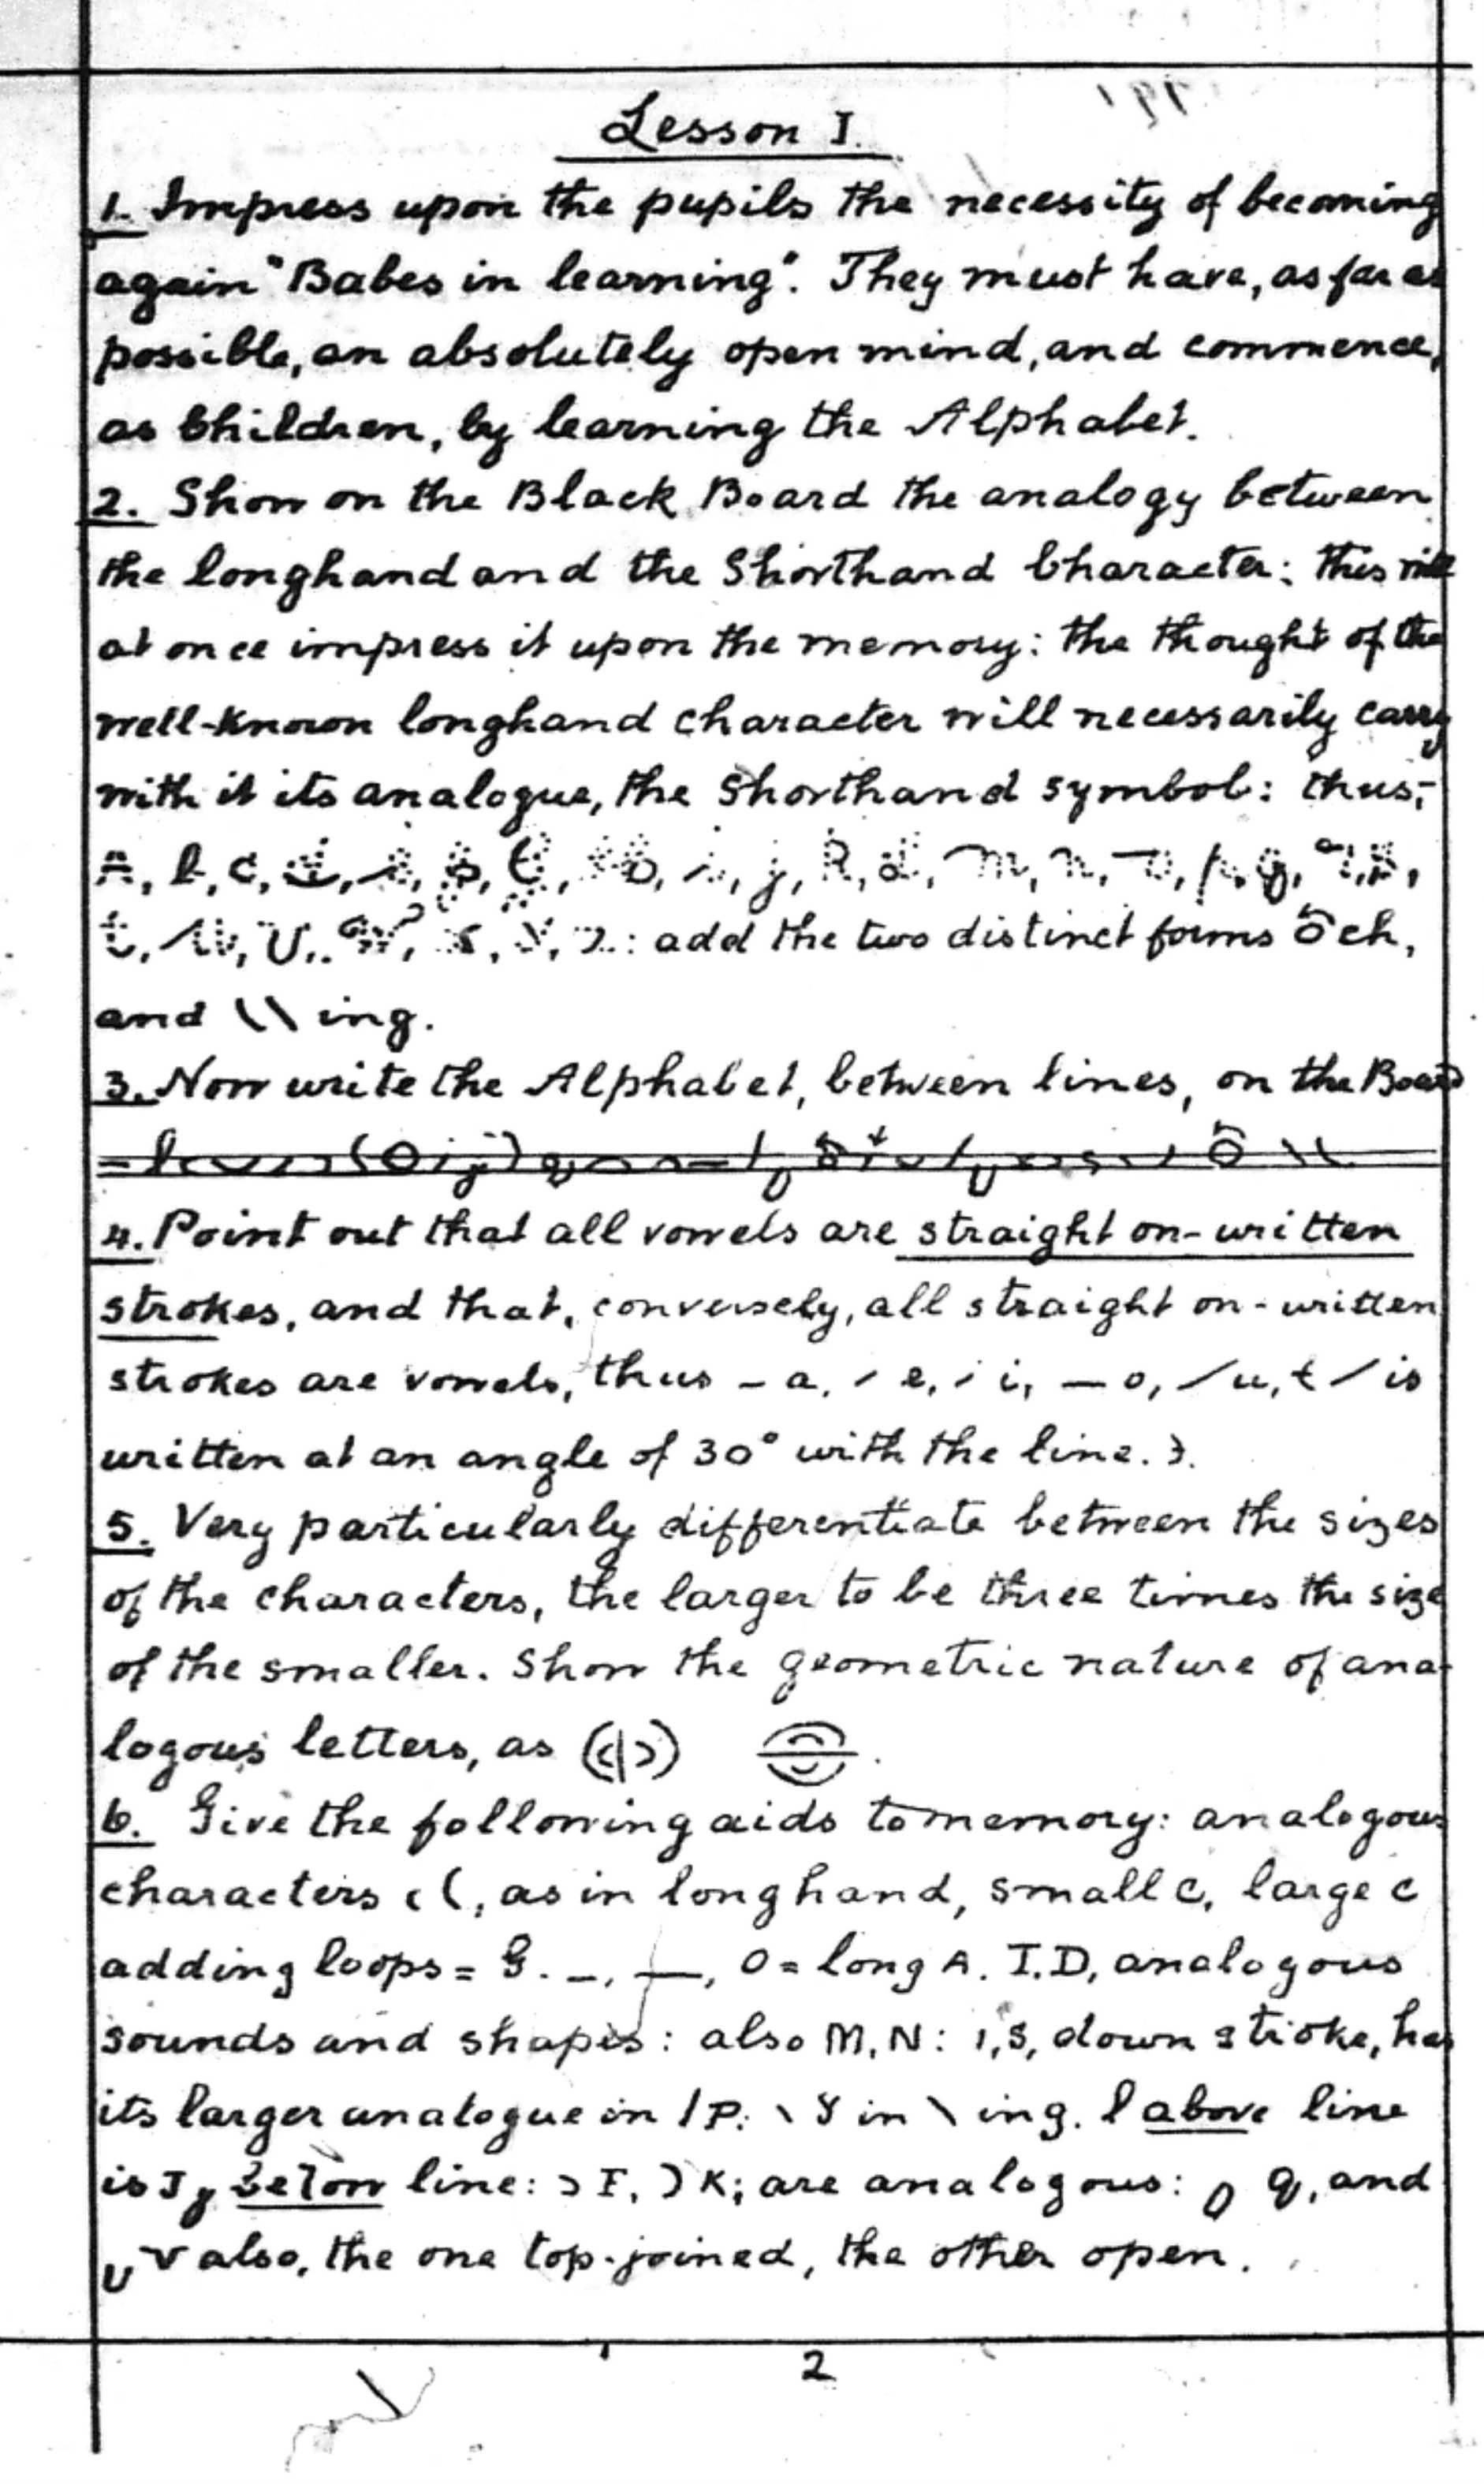 Lesson I.
1. Impress upon the pupils the necessity of becoming
again "Babes in learning". They must have, as far as
possible, an absolutely open mind, and commence,
as Children, by learning the Alphabet.
2. Show on the Black Board the analogy between
the longhand and the Shorthand Character: this will
at once impress it upon the memory: the thought of the
well-known longhand character will necessarily carry
with it its analogue, the Shorthand symbol: thus;-
A, b, c, d, e, f, G, h, i, j, k, l, m, n, o, p, q, r, s,
t, u, v, w, x, y, z: add the two distinct forms ch,
and \\ ing.
3. Now write the Alphabet, between lines, on the Board
4. Point out that all vowels are straight on-written
strokes, and that, conversely, all straight on-written
strokes are vowels, thus - a, / e, / i, — o, / u, t / is
written at an angle of 30° with the line.
5. Very particularly differentiate between the sizes
of the characters, the larger to be three times the size
of the smaller. Show the geometric nature of ana-
logous letters, as
6. Give the following aids to memory: analogous
characters c (, as in longhand, small c, large c
adding loops = G. -, —, O = long A. T.D, analogous
sounds and shapes: also M, N: ı, S, down stroke, has
its larger analogue in / P: \ Y in \ ing. l above line
is J below line: ) F, ) K; are analogous: q, and
v also, the one top-joined, the other open.
2